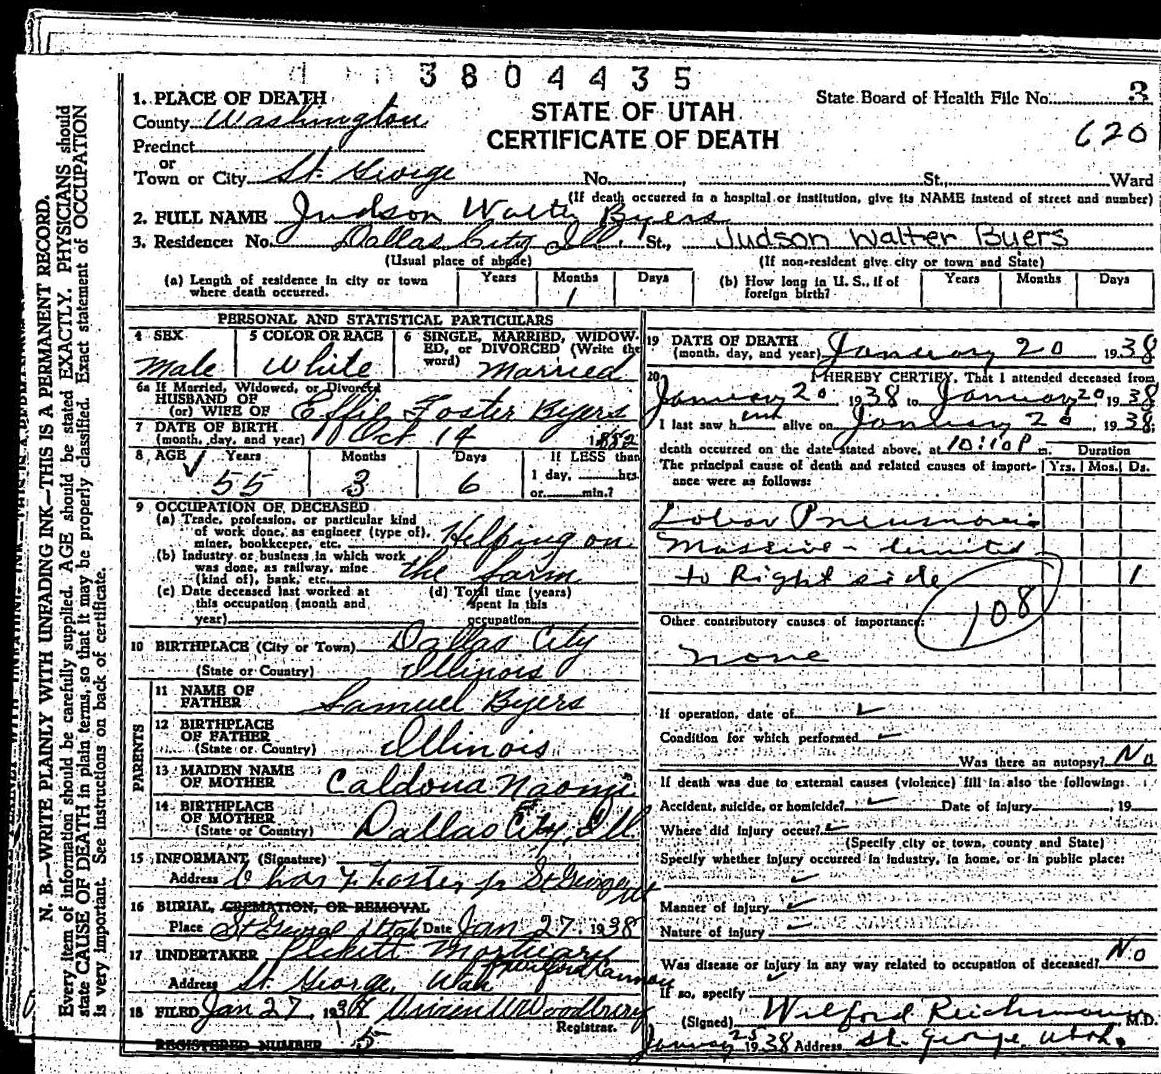 3804435
1. PLACE OF DEATH
STATE OF UTAH
CERTIFICATE OF DEATH
State Board of Health File No. 3
620
County Washington
Precinct
or
Town or City St. George No. , St., Ward
(If death occurred in a hospital or institution, give its NAME instead of street and number)
2. FULL NAME Judson Walter Byers
3. Residence: No. Dallas City Ill. St., Judson Walter Byers
(Usual place of abode) (If non-resident give city or town and State)
(a) Length of residence in city or town where death occurred. Years Months 1 Days
(b) How long in U. S., if of foreign birth? Years Months Days
PERSONAL AND STATISTICAL PARTICULARS
4 SEX Male
5 COLOR OR RACE White
6 SINGLE, MARRIED, WIDOWED, or DIVORCED (Write the word) Married
6a If Married, Widowed, or Divorced
HUSBAND OF
(or) WIFE OF Effie Foster Byers
7 DATE OF BIRTH
(month, day, and year) Oct 14 1882
8 AGE Years 55 Months 3 Days 6
If LESS than
1 day, hrs.
or min.?
9 OCCUPATION OF DECEASED
(a) Trade, profession, or particular kind
of work done, as engineer (type of),
miner, bookkeeper, etc. Helping on
(b) Industry or business in which work
was done, as railway, mine
(kind of), bank, etc. the farm
(c) Date deceased last worked at
this occupation (month and
year)
(d) Total time (years)
spent in this
occupation
10 BIRTHPLACE (City or Town) Dallas City
(State or Country) Illinois
PARENTS
11 NAME OF
FATHER Samuel Byers
12 BIRTHPLACE
OF FATHER
(State or Country) Illinois
13 MAIDEN NAME
OF MOTHER Naomi
14 BIRTHPLACE
OF MOTHER
(State or Country) Dallas City, Ill
15 INFORMANT (Signature)
Address Chas F Foster jr St George Ut
16 BURIAL, CREMATION, OR REMOVAL
Place St George Utah Date Jan 27 1938
17 UNDERTAKER Mortuary
Address St. George, Utah
18 FILED Jan 27, 1938 Woodbury
Registrar.
REGISTERED NUMBER 5
19 DATE OF DEATH
(month, day, and year) January 20 1938
20 I HEREBY CERTIFY, That I attended deceased from
January 20, 1938 to January 20, 1938
I last saw him alive on January 20 1938;
death occurred on the date stated above, at 10:10 P m.
Duration
The principal cause of death and related causes of importance were as follows:
Yrs. Mos. Ds.
Lobar Pneumonia
Massive - limited
to Right side 1
108
Other contributory causes of importance:
none
If operation, date of
Condition for which performed
Was there an autopsy? No
If death was due to external causes (violence) fill in also the following:
Accident, suicide, or homicide? Date of injury , 19
Where did injury occur?
(Specify city or town, county and State)
Specify whether injury occurred in industry, in home, or in public place:
Manner of injury
Nature of injury
Was disease or injury in any way related to occupation of deceased? No
If so, specify
(Signed) Wilford Reichmann M.D.
January 25 1938 Address St. George Utah.
N. B.—WRITE PLAINLY WITH UNFADING INK—THIS IS A PERMANENT RECORD.
Every item of information should be carefully supplied. AGE should be stated EXACTLY. PHYSICIANS should
state CAUSE OF DEATH in plain terms, so that it may be properly classified. Exact statement of OCCUPATION
is very important. See instructions on back of certificate.